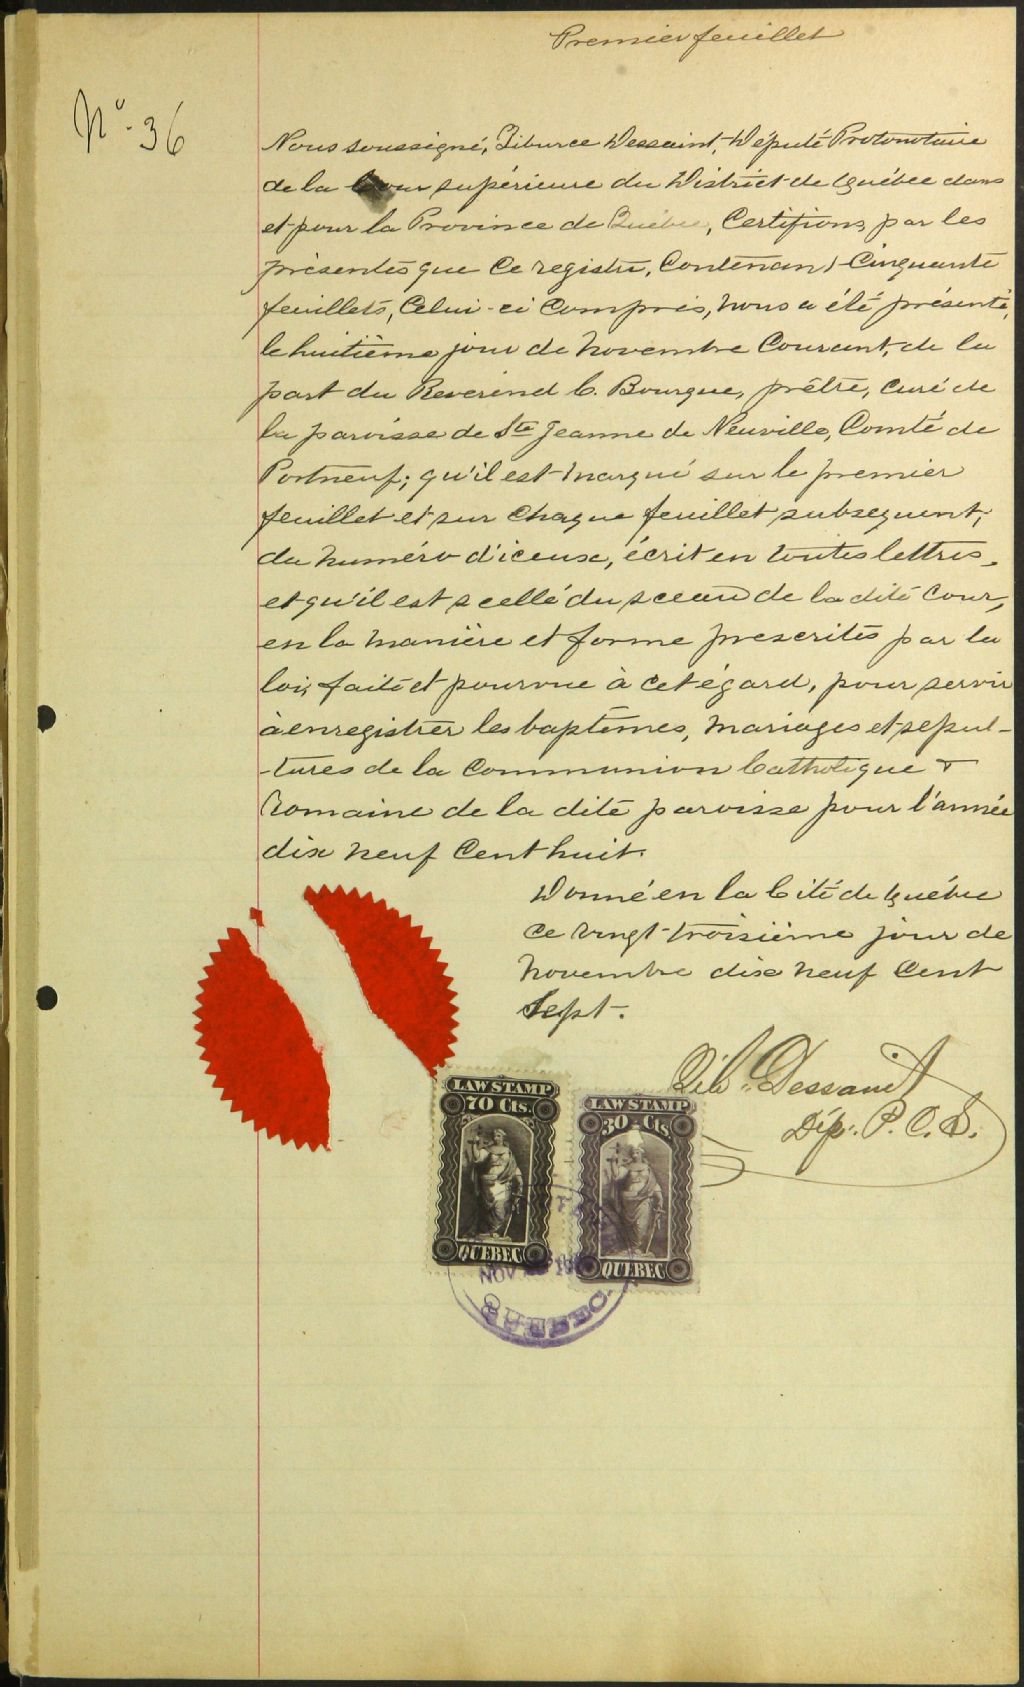 Premier feuillet
No. 36
Nous soussigné, Tiburce Dessaint, Député Protonotaire
de la Cour supérieure du District de Québec dans
et pour la Province de Québec, Certifions par les
présentes que Ce registre, Contenant Cinquante
feuillets, Celui-ci Compris, nous a été présenté,
le huitième jour de novembre Courant, de la
part du Reverend C. Bourque, prêtre, curé de
la paroisse de Ste Jeanne de Neuville, Comté de
Portneuf; qu'il est marqué sur le premier
feuillet et sur chaque feuillet subsequent,
du numéro d'iceux, écrit en toutes lettres,
et qu'il est scellé du sceau de la dite Cour,
en la manière et forme prescrites par la
loi, faite et pourvue à cet égard, pour servir
à enregistrer les baptêmes, mariages et sepul-
-tures de la Communion Catholique &
Romaine de la dite paroisse pour l'année
dix neuf Cent huit.
Donné en la Cité de Québec
Ce vingt-troisième jour de
novembre dix neuf Cent
Sept.
Tib. Dessaint
Dép. P. C. S.
LAW STAMP
70 Cts.
QUEBEC
LAW STAMP
30 Cts.
QUEBEC
NOV
QUEBEC